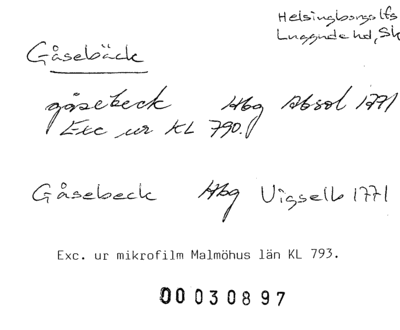 Helsingborgs lfs
Luggude hd, Sk
Gåsebäck
gåsebeck Hbg Absol 1771
Exc ur KL 790.
Gåsebeck Hbg Vigselb 1771
Exc. ur mikrofilm Malmöhus län KL 793.
00030897